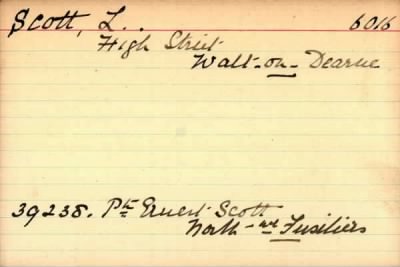 Scott, L.. 6016
High Street
Wath-on-Dearne
39238. Pte Ernest Scott
North-rd Fusiliers